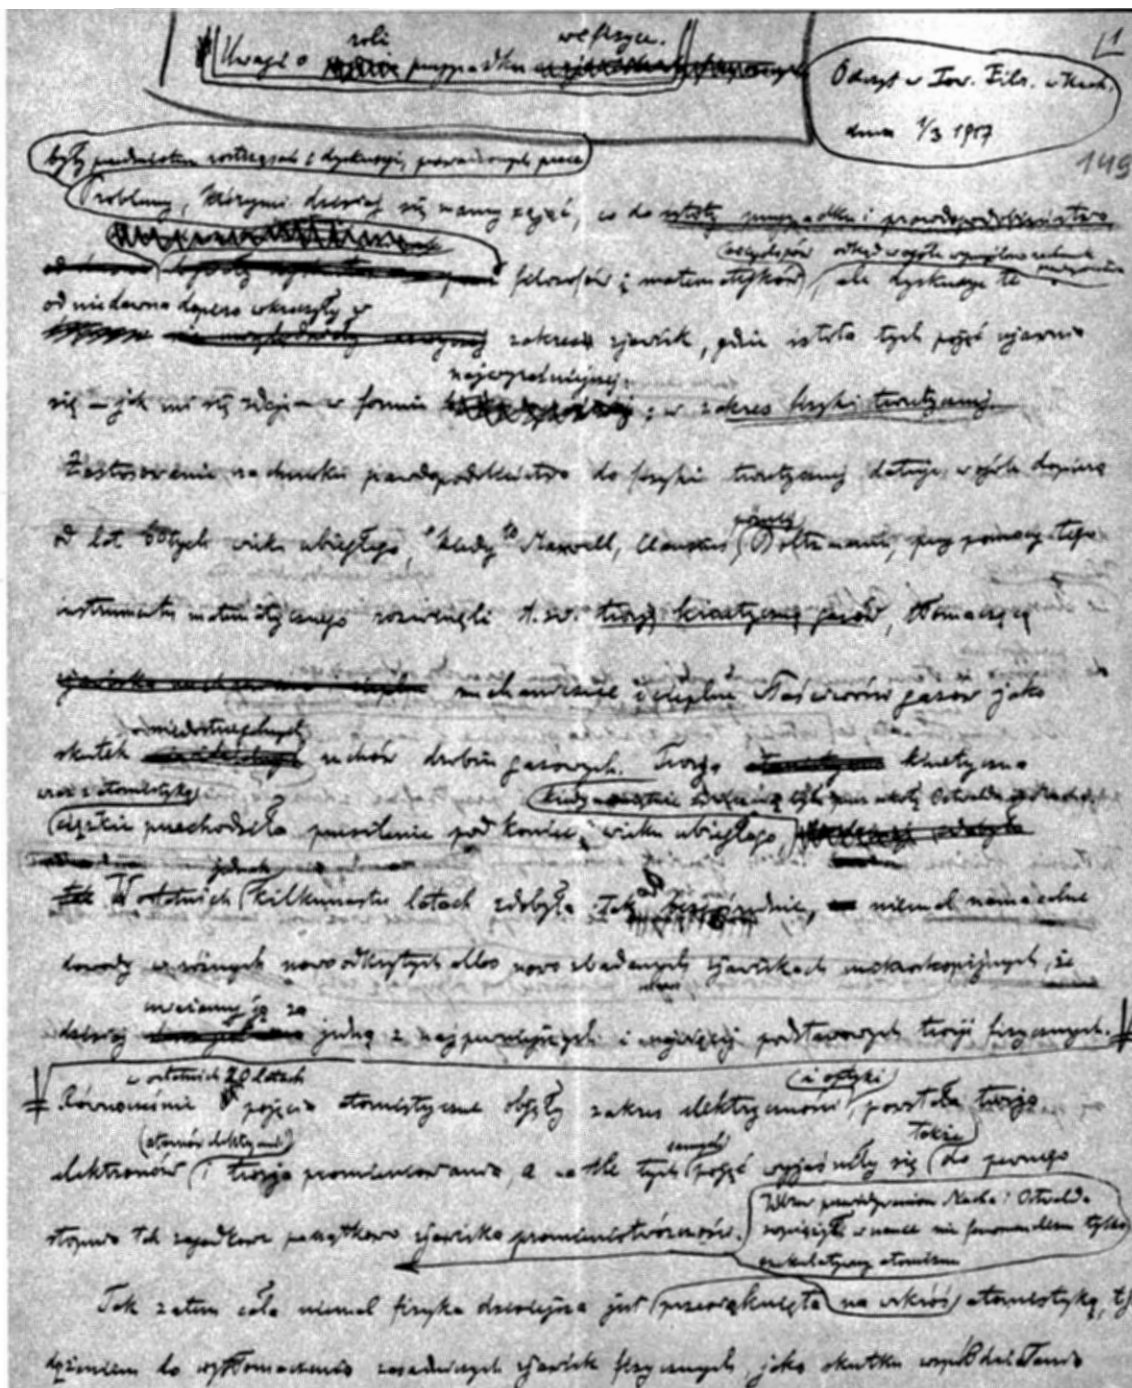 Uwagi o roli przypadku we fizyce.
1
Odczyt w Tow. Filz. w Krak.
dnia 1/3 1917
149
były przedmiotem roztrząsań i dyskusyi, prowadzonych przez
Problemy, którymi dzisiaj się mamy zająć, co do istoty przypadku i prawdopodobieństwa
filozofów i matematyków, ale dyskusye te
od niedawna dopiero wkroczyły w
zakres zjawisk, gdzie istota tych pojęć ujawnia
najwyraźniejszej
się – jak mi się zdaje – w formie ; w zakres fizyki teoretycznej.
Zastosowanie rachunku prawdopodobieństwa do fizyki teoretycznej datuje w ogóle dopiero
od lat 60tych wieku ubiegłego, kiedy to Maxwell, Clausius, później Boltzmann, przy pomocy tego
instrumentu matematycznego rozwinęli t. zw. teoryę kinetyczną gazów, tłomaczącą
mechaniczne i cieplne właściwości gazów jako
niedostrzegalnych
skutek ruchów drobin gazowych. Teorya kinetyczna
wraz z atomistyką
ciężkie przechodziła przesilenie pod koniec wieku ubiegłego,
kiedy szkoły Ostwalda
jednak
W ostatnich kilkunastu latach zdobyła tak bezpośrednie, niemal namacalne
dowody w różnych nowo odkrytych albo nowo zbadanych zjawiskach mikroskopijnych, że
uważamy ją za
dzisiaj jedną z najpewniejszych i najwięcej podstawowych teoryi fizycznych.
w ostatnich 20 latach
i optyki
Równocześnie pojęcia atomistyczne objęły zakres elektryczności, powstała teorya
(atomów elektryczn.)
samych
także
elektronów i teorya promieniowania, a na tle tych pojęć wyjaśniły się do pewnego
stopnia tak zagadkowe początkowo zjawiska promieniotwórczości.
Wbrew przewidywaniom Macha i Ostwalda
zwyciężył w nauce nie fenomenalizm tylko
spekulatywny atomizm
Tak zatem cała niemal fizyka dzisiejsza jest przesiąknięta na wskróś atomistyką, tj.
dążeniem do wytłomaczenia zasadniczych zjawisk fizycznych, jako skutku współdziałania